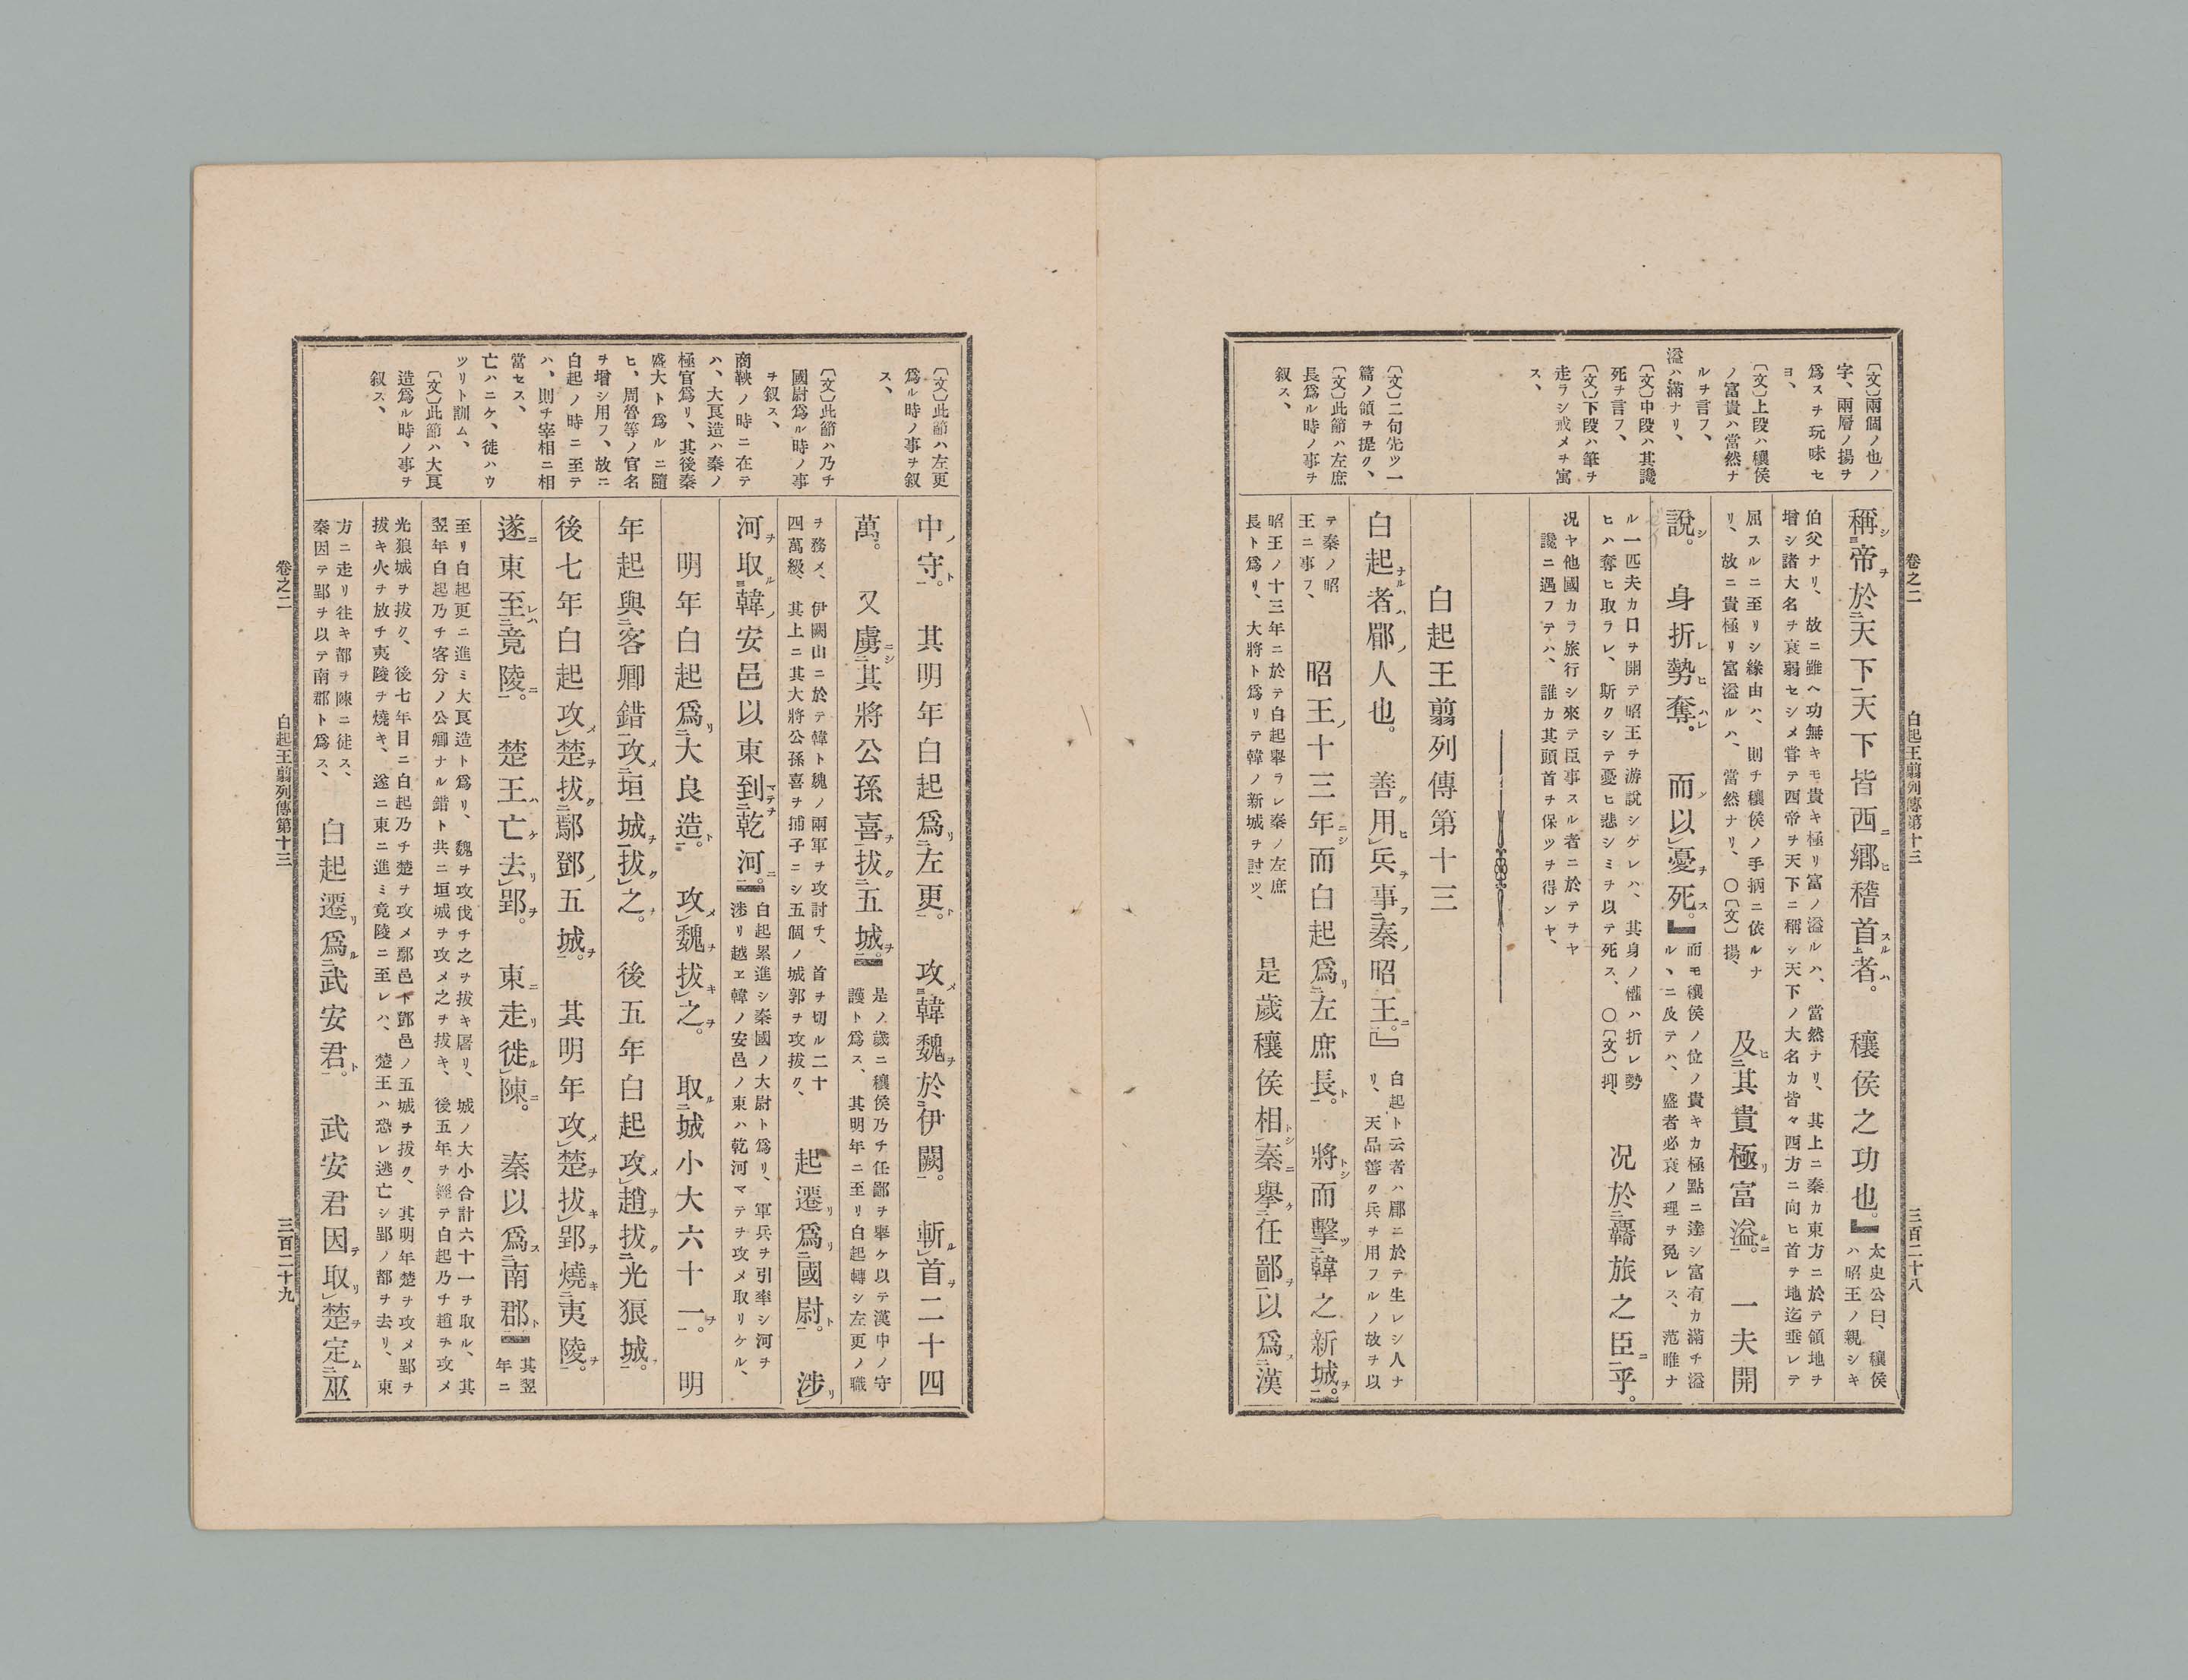 卷之二 白起王翦列傳第十三 三百二十八
〔文〕兩個ノ也ノ
字、兩層ノ揚ヲ
爲スヲ玩味セ
ヨ、
〔文〕上段ハ穰侯
ノ富貴ハ當然ナ
ルヲ言フ、
溢ハ滿ナリ、
〔文〕中段ハ其讒
死ヲ言フ、
〔文〕下段ハ筆ヲ
走ラシ戒メヲ寓
ス、
〔文〕二句先ツ一
篇ノ領ヲ提ク、
〔文〕此節ハ左庶
長爲ル時ノ事ヲ
叙ス、
稱帝於天下天下皆西鄕稽首者。 穰侯之功也。』太史公曰、穰侯
ハ昭王ノ親シキ
伯父ナリ、故ニ雖ヘ功無キモ貴キ極リ富ノ溢ルハ、當然ナリ、其上ニ秦カ東方ニ於テ領地ヲ
增シ諸大名ヲ衰弱セシメ嘗テ西帝ヲ天下ニ稱シ天下ノ大名カ皆々西方ニ向ヒ首ヲ地迄垂レテ
屈スルニ至リシ緣由ハ、則チ穰侯ノ手柄ニ依ルナ
リ、故ニ貴極リ富溢ルハ、當然ナリ、〇〔文〕揚、
及其貴極富溢。 一夫開
說。 身折勢奪。 而以憂死。』而モ穰侯ノ位ノ貴キカ極點ニ達シ富有カ滿チ溢
ルヽニ及テハ、盛者必衰ノ理ヲ免レス、范睢ナ
ル一匹夫カ口ヲ開テ昭王ヲ游說シケレハ、其身ノ權ハ折レ勢
ヒハ奪ヒ取ラレ、斯クシテ憂ヒ悲シミヲ以テ死ス、〇〔文〕抑、
况於羇旅之臣乎。
况ヤ他國カラ旅行シ來テ臣事スル者ニ於テヲヤ
讒ニ遇フテハ、誰カ其頭首ヲ保ツヲ得ンヤ、
白起王翦列傳第十三
白起者郿人也。 善用兵事秦昭王。』白起ト云者ハ郿ニ於テ生レシ人ナ
リ、天品善ク兵ヲ用フルノ故ヲ以
テ秦ノ昭
王ニ事フ、
昭王十三年而白起爲左庶長。 將而擊韓之新城。』
昭王ノ十三年ニ於テ白起擧ラレ秦ノ左庶
長ト爲リ、大將ト爲リテ韓ノ新城ヲ討ツ、
是歲穰侯相秦擧任鄙以爲漢
〔文〕此節ハ左更
爲ル時ノ事ヲ叙
ス、
〔文〕此節ハ乃チ
國尉爲ル時ノ事
ヲ叙ス、
商鞅ノ時ニ在テ
ハ、大良造ハ秦ノ
極官爲リ、其後秦
盛大ト爲ルニ隨
ヒ、周曾等ノ官名
ヲ增シ用フ、故ニ
白起ノ時ニ至テ
ハ、則チ宰相ニ相
當セス、
亡ハニケ、徙ハウ
ツリト訓ム、
〔文〕此節ハ大良
造爲ル時ノ事ヲ
叙ス、
中守。 其明年白起爲左更。 攻韓魏於伊闕。 斬首二十四
萬。 又虜其將公孫喜拔五城。』是ノ歲ニ穰侯乃チ任鄙ヲ擧ケ以テ漢中ノ守
護ト爲ス、其明年ニ至リ白起轉シ左更ノ職
ヲ務メ、伊闕山ニ於テ韓ト魏ノ兩軍ヲ攻討チ、首ヲ切ル二十
四萬級、其上ニ其大將公孫喜ヲ捕子ニシ五個ノ城郭ヲ攻拔ク、
起遷爲國尉。 涉
河取韓安邑以東到乾河。』白起累進シ秦國ノ大尉ト爲リ、軍兵ヲ引率シ河ヲ
涉リ越ヱ韓ノ安邑ノ東ハ乾河マテヲ攻メ取リケル、
明年白起爲大良造。 攻魏拔之。 取城小大六十一。 明
年起與客卿錯攻垣城拔之。 後五年白起攻趙拔光狼城。
後七年白起攻楚拔鄢鄧五城。 其明年攻楚拔郢燒夷陵。
遂東至竟陵。 楚王亡去郢。 東走徙陳。 秦以爲南郡』其翌
年ニ
至リ白起更ニ進ミ大良造ト爲リ、魏ヲ攻伐チ之ヲ拔キ屠リ、城ノ大小合計六十一ヲ取ル、其
翌年白起乃チ客分ノ公卿ナル錯ト共ニ垣城ヲ攻メ之ヲ拔キ、後五年ヲ經テ白起乃チ趙ヲ攻メ
光狼城ヲ拔ク、後七年目ニ白起乃チ楚ヲ攻メ鄢邑下鄧邑ノ五城ヲ拔ク、其明年楚ヲ攻メ郢ヲ
拔キ火ヲ放チ夷陵ヲ燒キ、遂ニ東ニ進ミ竟陵ニ至レハ、楚王ハ恐レ逃亡シ郢ノ都ヲ去リ、東
方ニ走リ往キ都ヲ陳ニ徙ス、
秦因テ郢ヲ以テ南郡ト爲ス、
白起遷爲武安君。 武安君因取楚定巫
卷之二 白起王翦列傳第十三 三百二十九